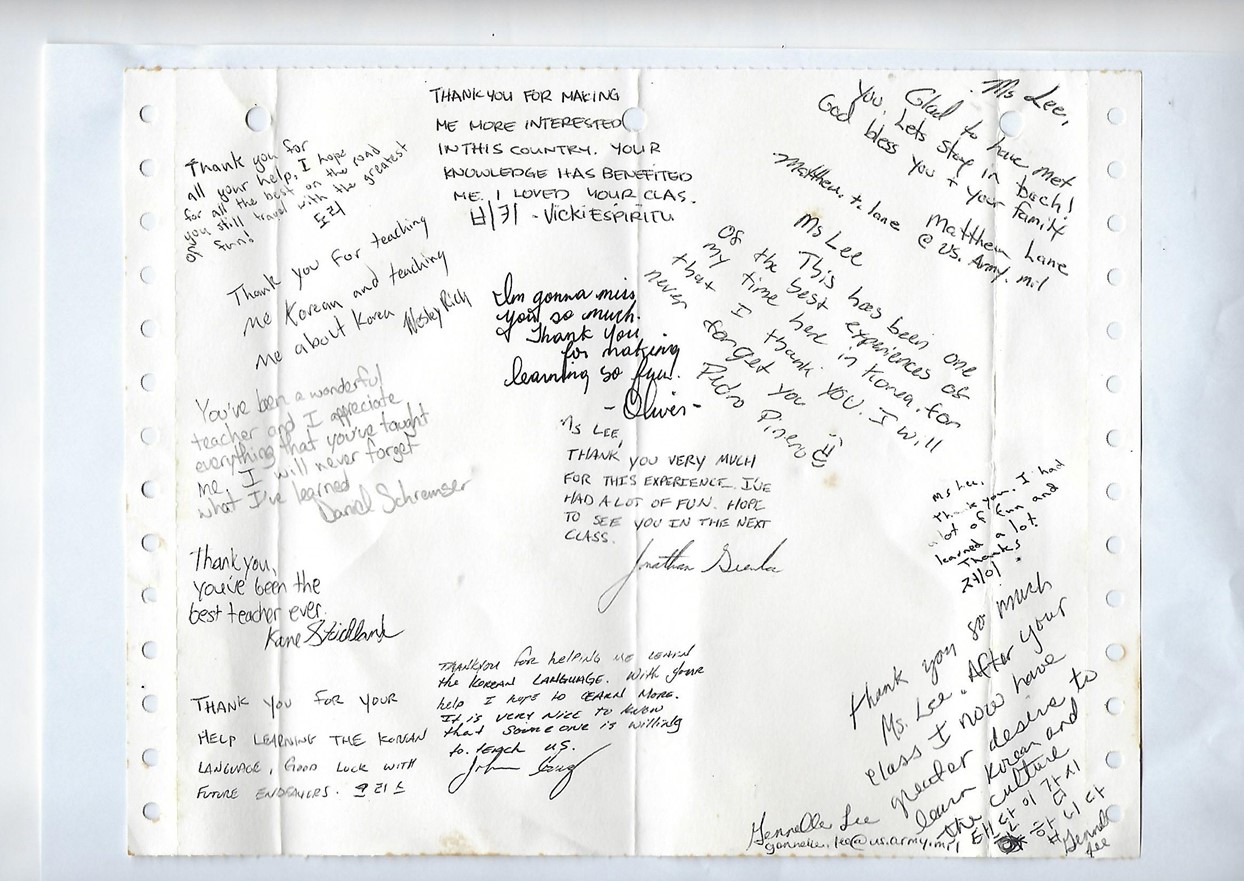 Thank you for
all your help, I hope
for all the best on the road
you still travel with the greatest
of fun!
도리
THANK YOU FOR MAKING
ME MORE INTERESTED
IN THIS COUNTRY. YOUR
KNOWLEDGE HAS BENEFITED
ME. I LOVED YOUR CLAS.
비키 - VICKI ESPIRITU
Ms Lee,
Glad to have met
you. Lets stay in touch!
God bless you + your family
Matthew Lane
Matthew.t.lane @ US.Army.mil
Thank you for teaching
me Korean and teaching
me about Korea
Wesley Rich
I'm gonna miss
you so much.
Thank you
for making
learning so fun!
- Oliver -
Ms Lee
This has been one
of the best experiences of
my time here in Korea. for
that I thank you. I will
never forget you
Pedro
You've been a wonderful
teacher and I appreciate
everything that you've taught
me. I will never forget
what I've learned
Daniel
MS LEE,
THANK YOU VERY MUCH
FOR THIS EXPERIENCE. I'VE
HAD A LOT OF FUN. HOPE
TO SEE YOU IN THE NEXT
CLASS.
Jonathan
Ms Lee,
Thank you. I had
a lot of fun and
learned a lot.
Thanks
Thank you,
you've been the
best teacher ever.
Kane
THANK YOU FOR YOUR
HELP LEARNING THE KOREAN
LANGUAGE, GOOD LUCK WITH
FUTURE ENDEAVORS.
THANKYOU for helping ME LEARN
the KOREAN LANGUAGE. With your
help I hope to LEARN MORE.
It is VERY NICE TO KNOW
that someone is willing
to teach us.
Thank you so much
Ms. Lee. After your
class I now have
greater desire to
learn Korean and
the culture
Gennelle Lee
gennelle.lee@us.army.mil
Gennelle
Lee